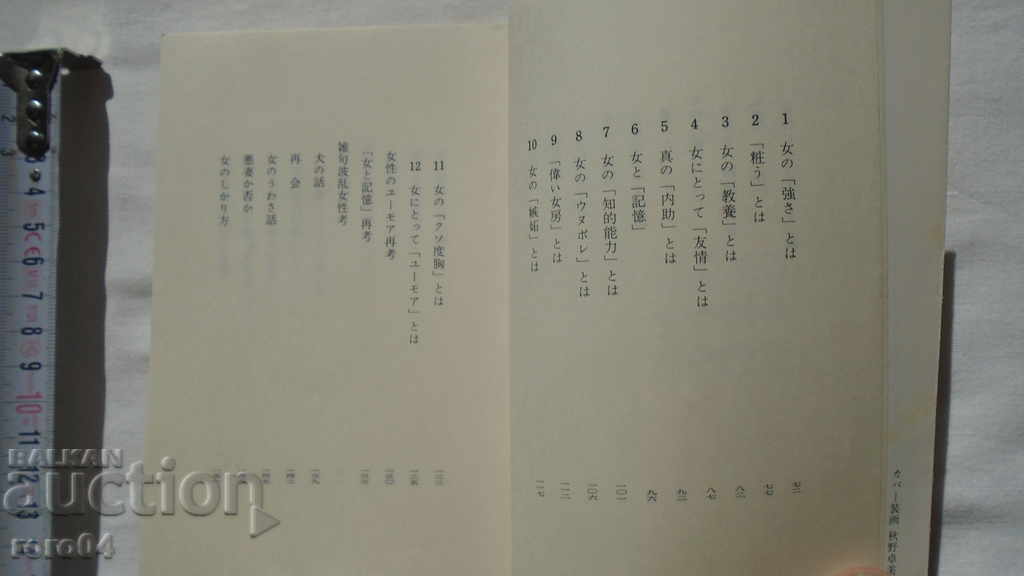 1 女の「強さ」とは 七二
2 「粧う」とは 七七
3 女の「教養」とは 八二
4 女にとって「友情」とは 八七
5 真の「内助」とは 九二
6 女と「記憶」 九六
7 女の「知的能力」とは 一〇一
8 女の「ウヌボレ」とは 一〇六
9 「偉い女房」とは 一一二
10 女の「嫉妬」とは 一一七
11 女の「クソ度胸」とは
12 女にとって「ユーモア」とは
女性のユーモア再考
「女と記憶」再考
雑句波乱女性考
犬の話
再会
女のうわさ話
悪妻か否か
女のしかり方
カバー装画 秋野卓美
2 3 4 5 6 7 8 9 10 11 12 13
BALKAN
auction
roro04